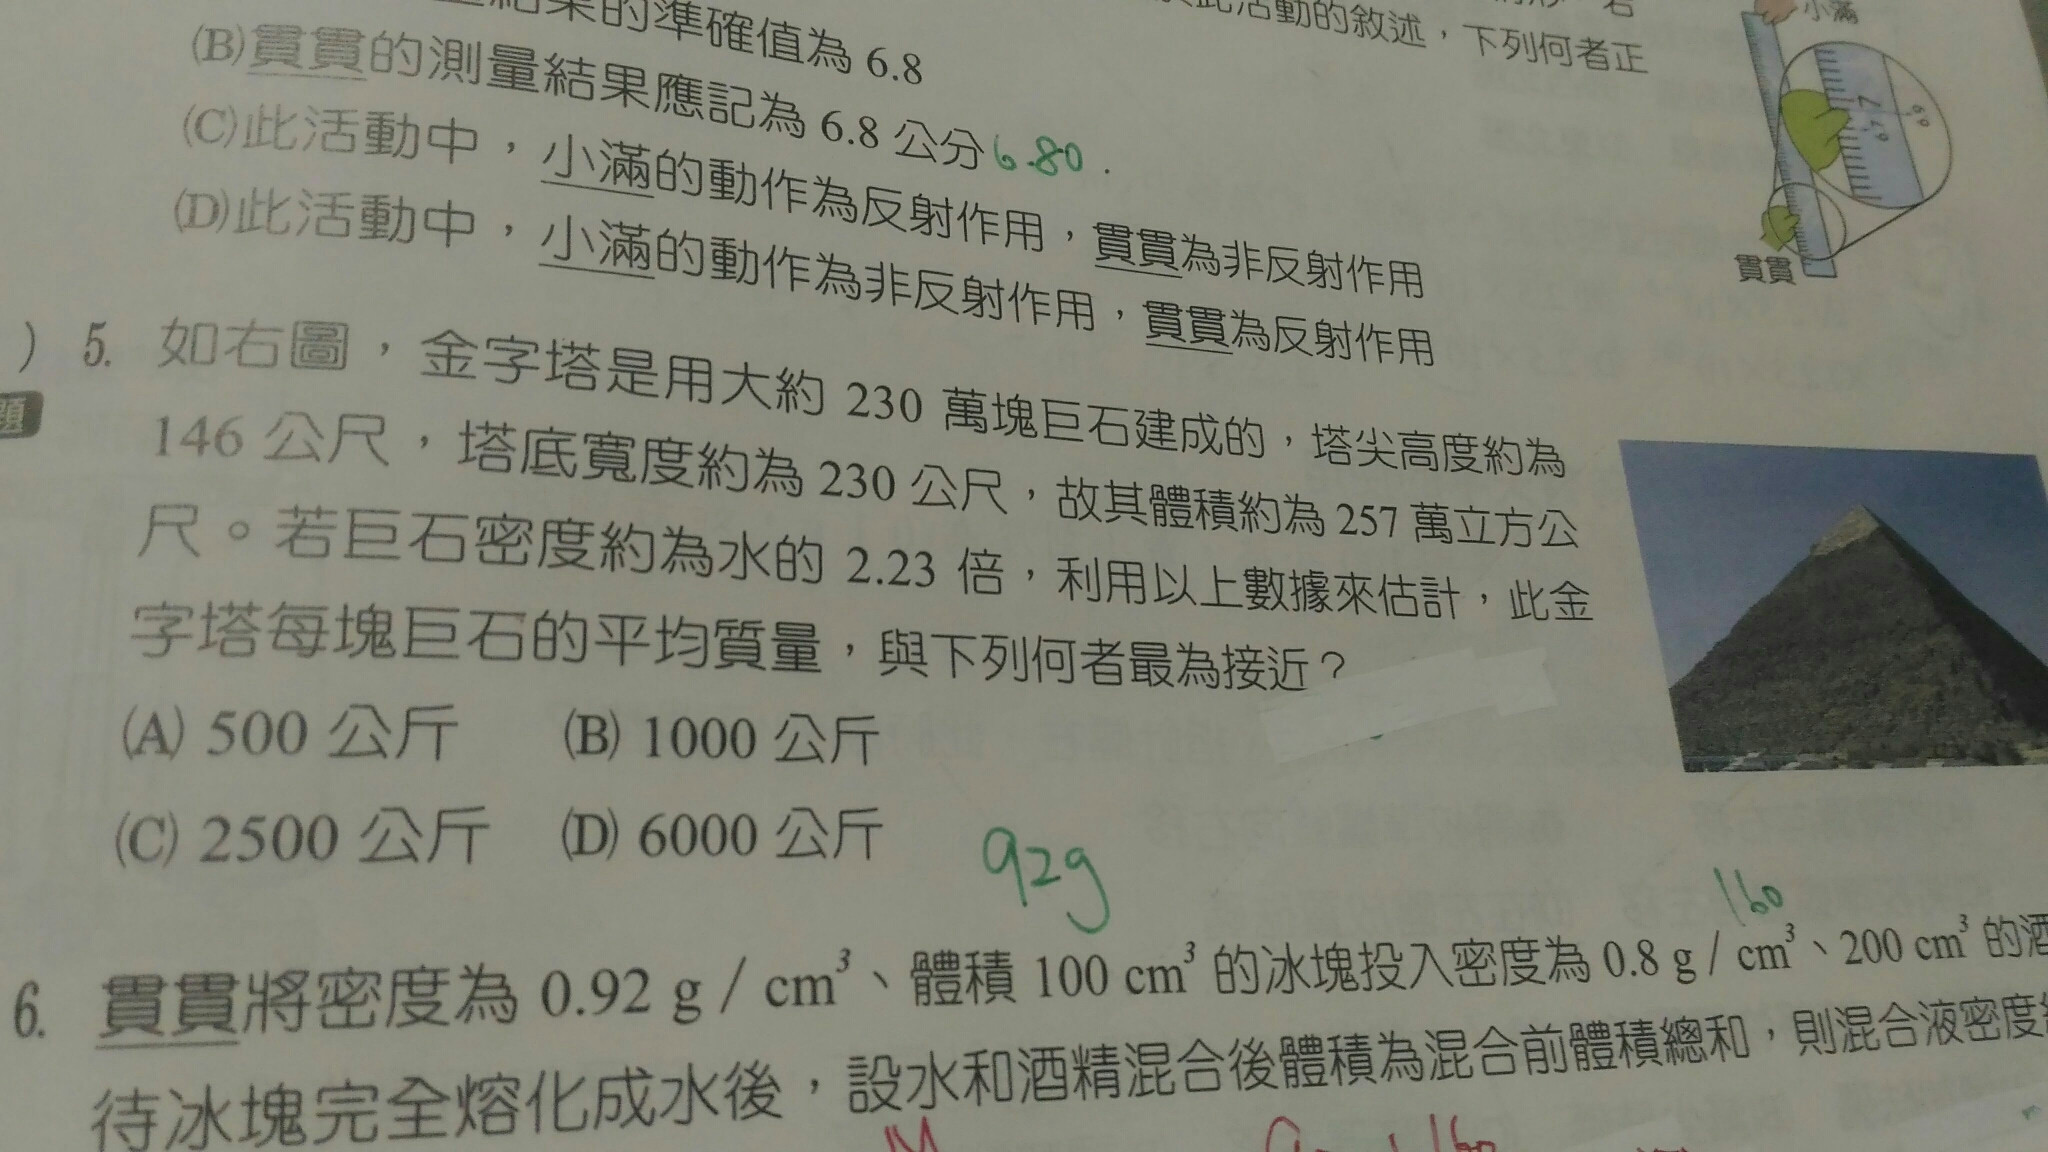 結果的準確值為 6.8
此活動的敘述，下列何者正
小滿
(B)貫貫的測量結果應記為 6.8 公分 6.80 .
(C)此活動中，小滿的動作為反射作用，貫貫為非反射作用
(D)此活動中，小滿的動作為非反射作用，貫貫為反射作用
貫貫
) 5. 如右圖，金字塔是用大約 230 萬塊巨石建成的，塔尖高度約為
題
146 公尺，塔底寬度約為 230 公尺，故其體積約為 257 萬立方公
尺。若巨石密度約為水的 2.23 倍，利用以上數據來估計，此金
字塔每塊巨石的平均質量，與下列何者最為接近？
(A) 500 公斤 (B) 1000 公斤
(C) 2500 公斤 (D) 6000 公斤
92g
160
6. 貫貫將密度為 0.92 g / cm³、體積 100 cm³ 的冰塊投入密度為 0.8 g / cm³、200 cm³ 的酒
待冰塊完全熔化成水後，設水和酒精混合後體積為混合前體積總和，則混合液密度
M
160